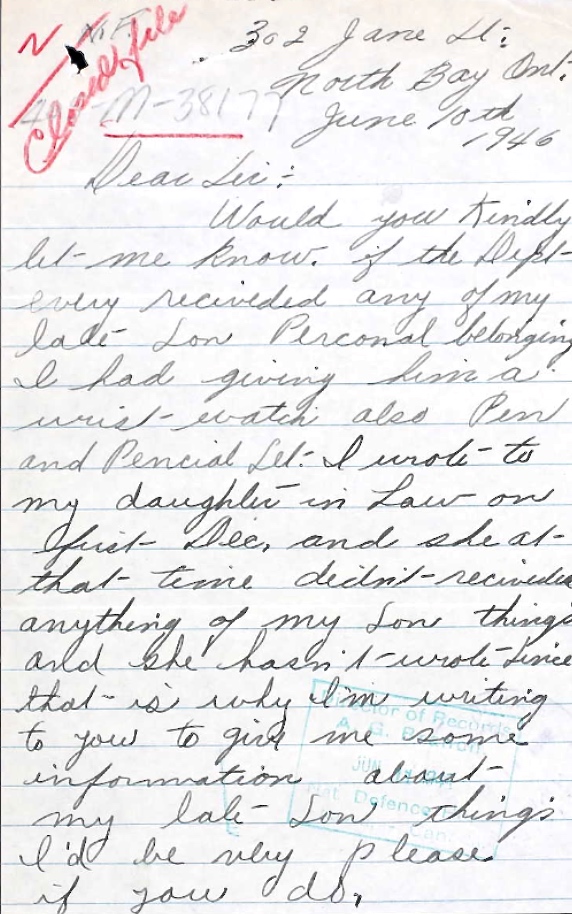 2 N.F.
Closed file
M-38177
302 Jane St:
North Bay Ont.
June 10th
1946
Dear Sir:-
Would you Kindly
let me know. if the Dept
every recivided any of my
late Son Perconal belonging
I had giving him a
wrist-watch also Pen
and Pencial Set. I wrote to
my daughter in Law on
first Dec, and she at
that time didn't recivided
anything of my Son things
and she hasn't wrote Since
that is why I'm writing
to you to give me some
information about
my late Son things
I'd be very please
if you do,
Director of Records
A. G. Branch
JUN
Nat Defence